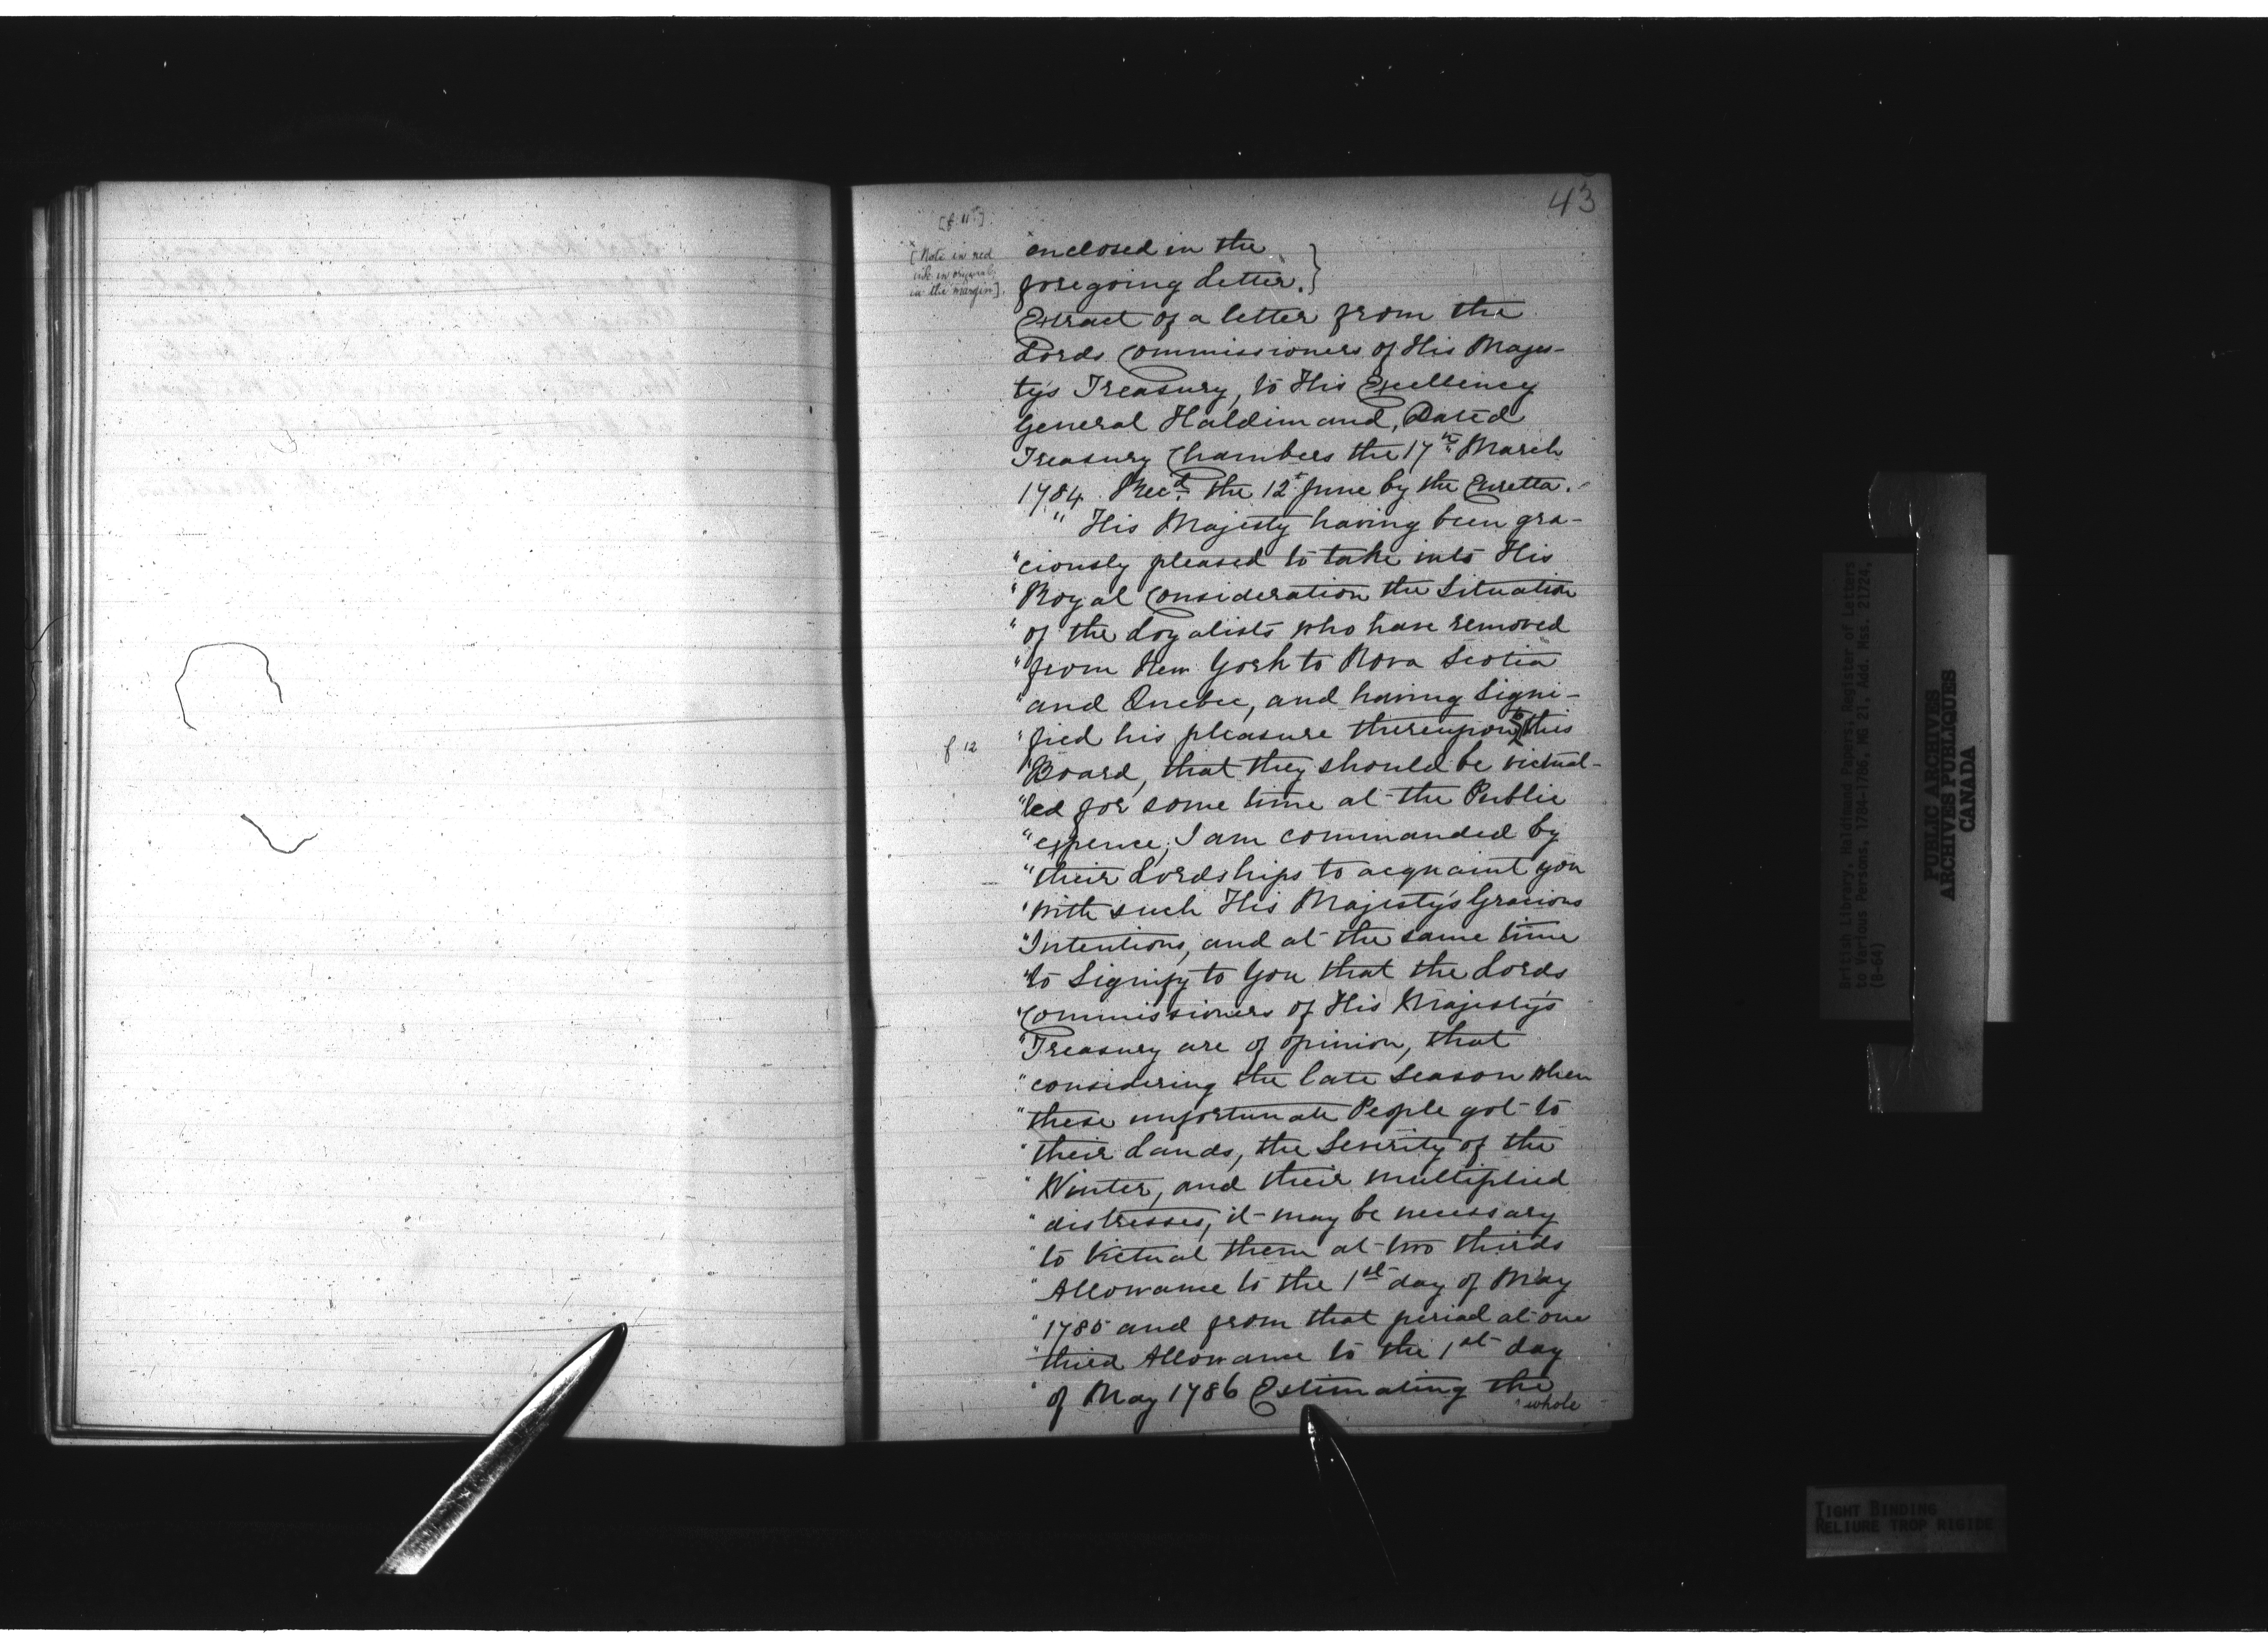 43
[f. 11]
[Note in red
ink in original
in the margin].
"enclosed in the
foregoing Letter."}
Extract of a letter from the
Lords Commissioners of His Majes-
ty's Treasury, to His Excellency
General Haldimand, Dated
Treasury Chambers the 17th March
1784. Recd. the 12t June by the Euretta.
" His Majesty having been gra-
"ciously pleased to take into His
"Royal Consideration the Situation
"of the Loyalists who have removed
"from New York to Nova Scotia
"and Quebec, and having Signi-
"fied his pleasure thereupon to this
f 12
"Board, that they should be victual-
"led for some time at the Public
"expence; I am commanded by
"their Lordships to acquaint you
"with such His Majesty's Gracious
"Intentions, and at the same time
"to Signify to You that the Lords
"Commissioners of His Majesty's
"Treasury are of opinion, that
"considering the late Season when
"these unfortunate People got to
"their Lands, the Severity of the
"Winter, and their multiplied
"distresses, it may be necessary
"to Victual them at two thirds
"Allowance to the 1st day of May
"1785 and from that period at one
"third Allowance to the 1st day
"of May 1786 Estimating the
"whole
British Library, Haldimand Papers, Register of Letters
to Various Persons, 1784-1786, MG 21, Add. Mss. 21724,
(B-64)
PUBLIC ARCHIVES
ARCHIVES PUBLIQUES
CANADA
TIGHT BINDING
RELIURE TROP RIGIDE